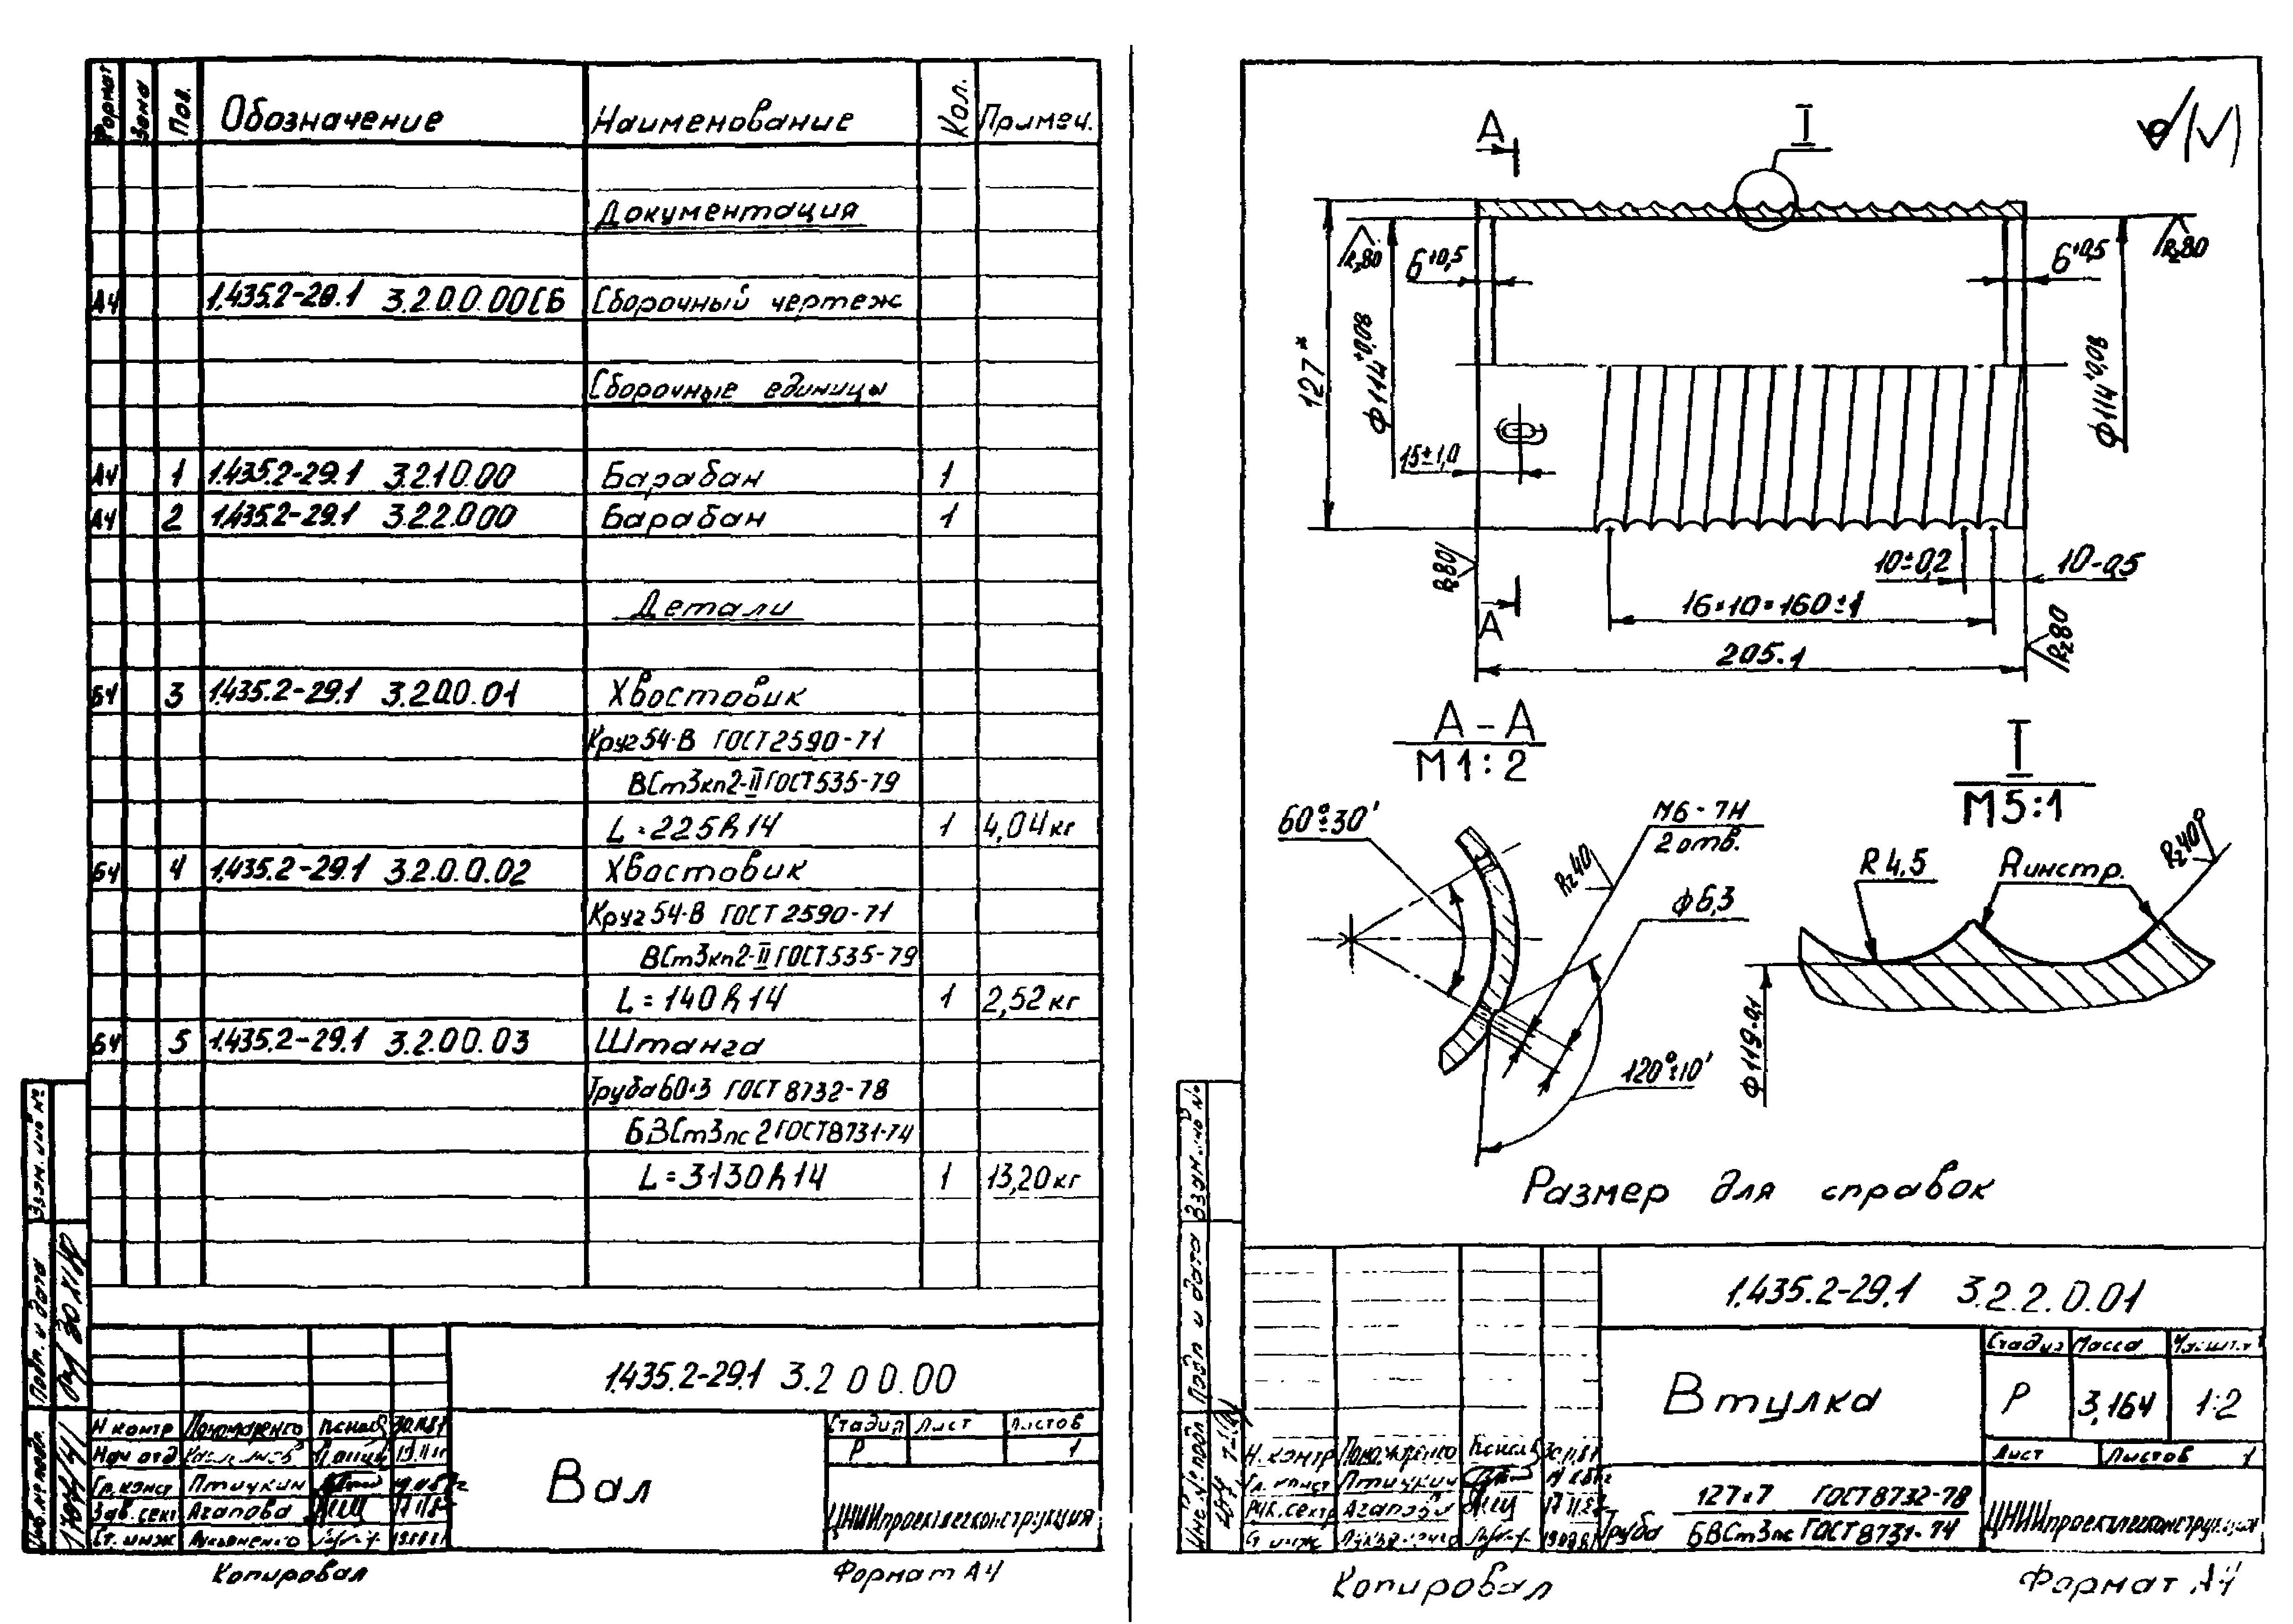 Формат Зона Поз. Обозначение Наименование Кол. Примеч.
Документация
А4 1.435.2-29.1 3.2.0.0.00СБ Сборочный чертеж
Сборочные единицы
А4 1 1.435.2-29.1 3.2.1.0.00 Барабан 1
А4 2 1.435.2-29.1 3.2.2.0.00 Барабан 1
Детали
БЧ 3 1.435.2-29.1 3.2.0.0.01 Хвостовик
Круг 54-В ГОСТ 2590-71
ВСт3кп2-II ГОСТ 535-79
L=225h14 1 4,04кг
БЧ 4 1.435.2-29.1 3.2.0.0.02 Хвостовик
Круг 54-В ГОСТ 2590-71
ВСт3кп2-II ГОСТ 535-79
L=140h14 1 2,52кг
БЧ 5 1.435.2-29.1 3.2.0.0.03 Штанга
Труба 60×3 ГОСТ 8732-78
БВСт3пс2 ГОСТ 8731-74
L=3130h14 1 13,20кг
Взам. инв №
Подп. и дата
Инв.№ подл.
1.435.2-29.1 3.2.0.0.00
Н контр Пономаренко
Нач отд
Гл. конст Птичкин
Зав. сект Агапова
Ст. инж Лукьяненко
Вал
Стадия Лист Листов
Р 1
ЦНИИпроектлегконструкция
Копировал Формат А4
А
I
Rz80
6+0,5
6+0,5
Rz80
127*
ф114+0,08
ф114+0,08
15±1,0
Rz80
10±0,2
10-0,5
А
16×10=160±1
Rz80
205±1
А-А
М1:2
I
М5:1
60°±30'
М6-7Н
2 отв.
Rz40
ф6,3
120°±10'
R4,5
Rинстр.
Rz40
ф119-0,1
Размер для справок
Взам. инв №
Подп и дата
Инв № подл
1.435.2-29.1 3.2.2.0.01
Втулка
Стадия Масса
Р 3,164 1:2
Лист Листов 1
Н. контр Пономаренко
Гл. конст Птичкин
Рук. сект Агапова
Ст инж
Труба 127×7 ГОСТ 8732-78
БВСт3пс ГОСТ 8731-74
ЦНИИпроектлегконструкция
Копировал Формат А4